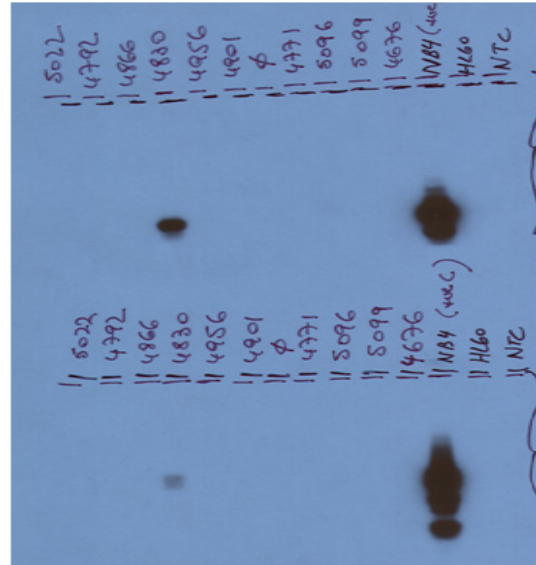 5022
4792
4866
4830
4956
4901
φ
4771
5096
5099
4676
NB4 (+ve
HL60
NTC
5022
4792
4866
4830
4956
4901
φ
4771
5096
5099
4676
NB4 (+ve C)
HL60
NTC